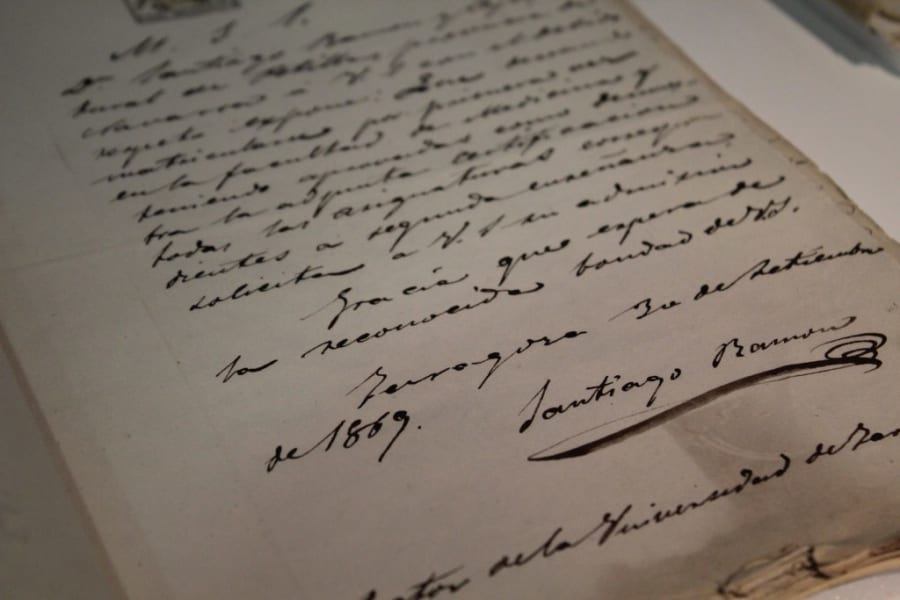 M. I. S.
Dn. Santiago Ramon y
dural de Petilla provincia de
Navarra a V. S. con el debido
respeto expone: Que desean
matricularse por primera vez
en la facultad de Medicina y
teniendo aprovadas como demues
tra la adjunta certificacion
todas las asignaturas correspon
dientes a segunda enseñanza,
solicita a V. S. su admision
Gracia que espera de
la reconocida bondad de VS.
Zaragoza 30 de Setiembre
de 1869.
Santiago Ramon
ctor de la Universidad de Zar